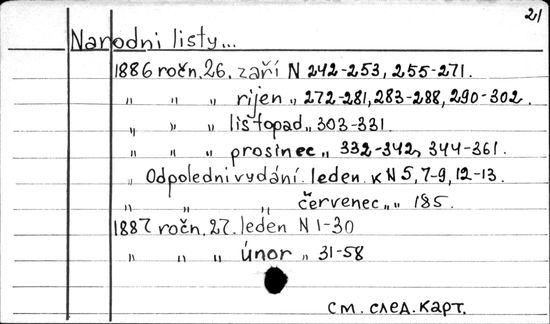 21
Narodni listy...
1886 ročn. 26. zaří N 242-253, 255-271.
" " " rijen " 272-281, 283-288, 290-302.
" " " listopad " 303-331.
" " " prosinec " 332-342, 344-361.
" Odpoledni vydání. leden. к N 5, 7-9, 12-13.
" " " červenec " " 185.
1887 ročn. 27. leden N 1-30
" " " únor " 31-58
см. след. карт.